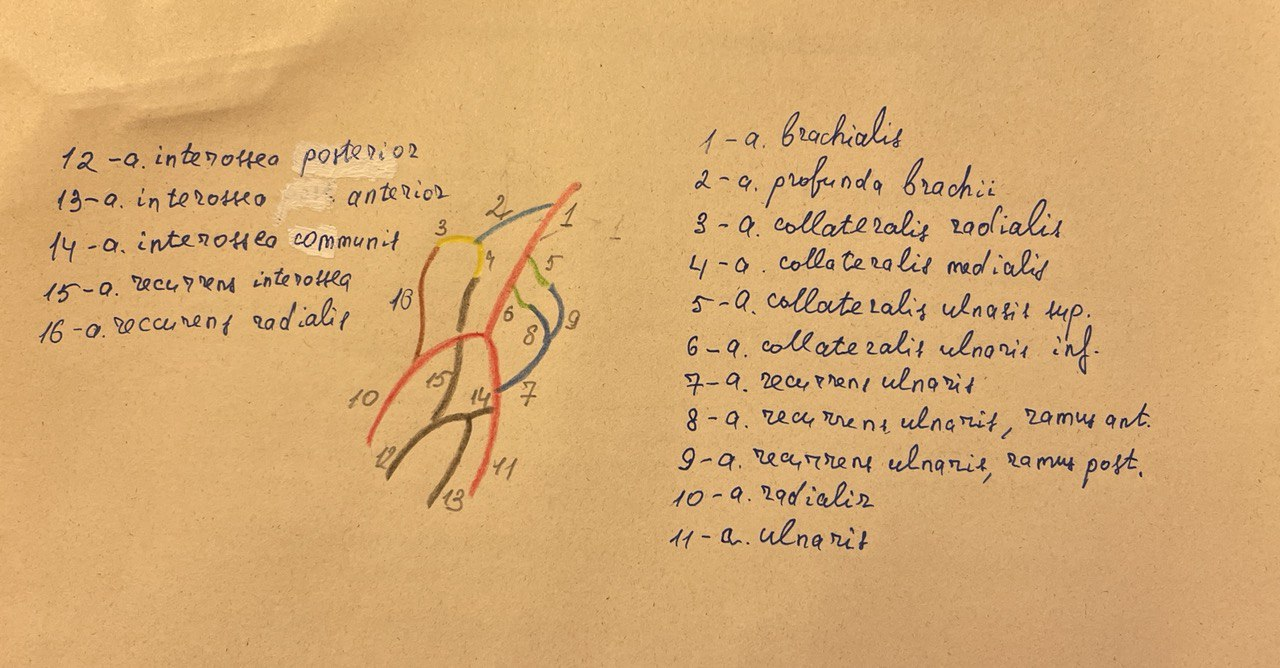 12 - a. interossea posterior
13 - a. interossea anterior
14 - a. interossea communis
15 - a. recurrens interossea
16 - a. reccurens radialis
1 - a. brachialis
2 - a. profunda brachii
3 - a. collateralis radialis
4 - a. collateralis medialis
5 - a. collateralis ulnaris sup.
6 - a. collateralis ulnaris inf.
7 - a. recurrens ulnaris
8 - a. recurrens ulnaris, ramus ant.
9 - a. recurrens ulnaris, ramus post.
10 - a. radialis
11 - a. ulnaris
2
1
3
4
5
16
6
9
8
15
14
7
10
12
11
13